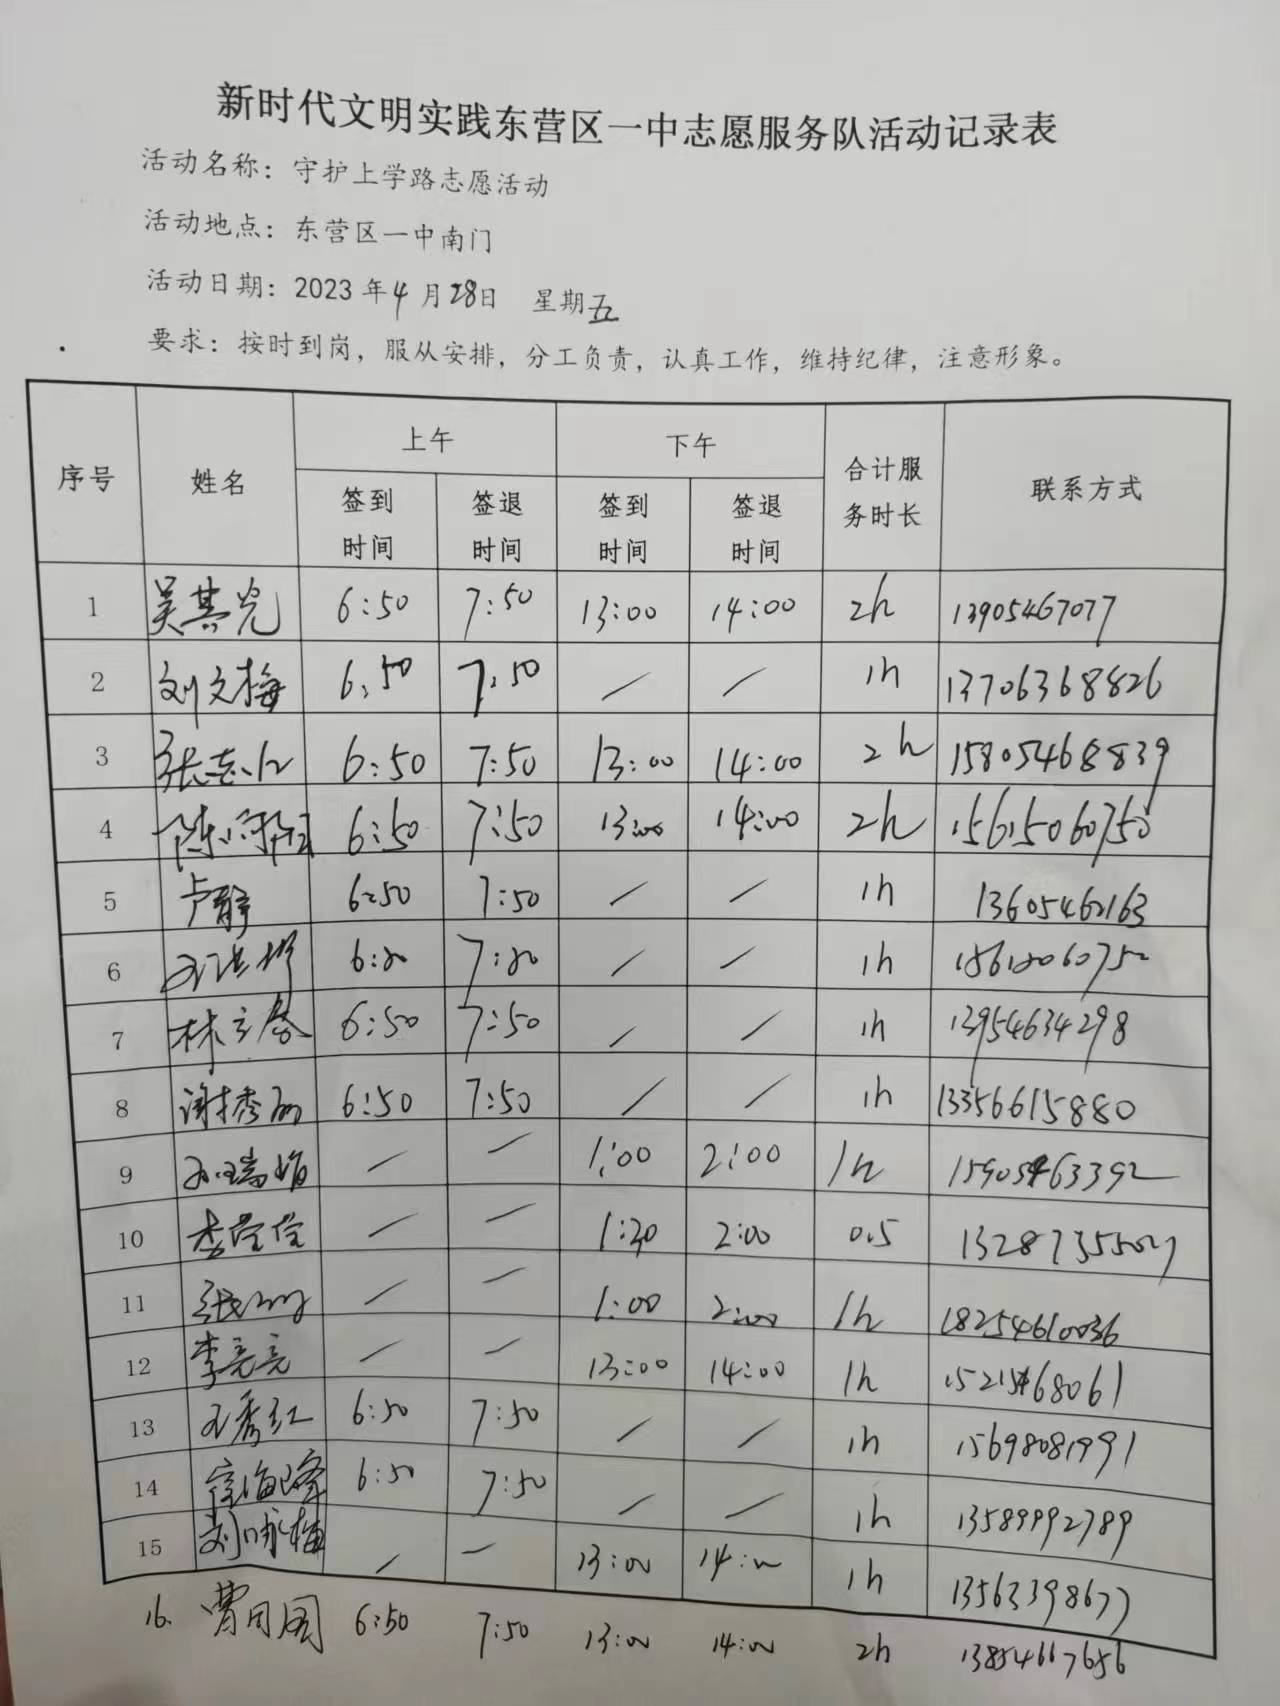 新时代文明实践东营区一中志愿服务队活动记录表
活动名称：守护上学路志愿活动
活动地点：东营区一中南门
活动日期：2023年4月28日 星期五
要求：按时到岗，服从安排，分工负责，认真工作，维持纪律，注意形象。
序号 姓名 上午 下午 合计服务时长 联系方式
签到时间 签退时间 签到时间 签退时间
1 吴其光 6:50 7:50 13:00 14:00 2h 13905467077
2 刘文梅 6:50 7:50 / / 1h 13706368826
3 6:50 7:50 13:00 14:00 2h 15805468839
4 6:50 7:50 13:00 14:00 2h 15615060750
5 卢静 6:50 7:50 / / 1h 13605462163
6 / / 1h
7 6:50 7:50 / / 1h 13954634298
8 谢秀丽 6:50 7:50 / / 1h 13356615880
9 / / 1:00 2:00 1h 15905463392
10 / / 1:30 2:00 0.5
11 / / 1:00 2:00 1h 18254610036
12 李亮亮 / / 13:00 14:00 1h
13 王秀红 6:50 7:50 / / 1h 15698081991
14 6:50 7:50 / / 1h 13589992789
15 刘咏梅 / / 13:00 14:00 1h 13563398677
16. 6:50 7:50 13:00 14:00 2h 13854667656